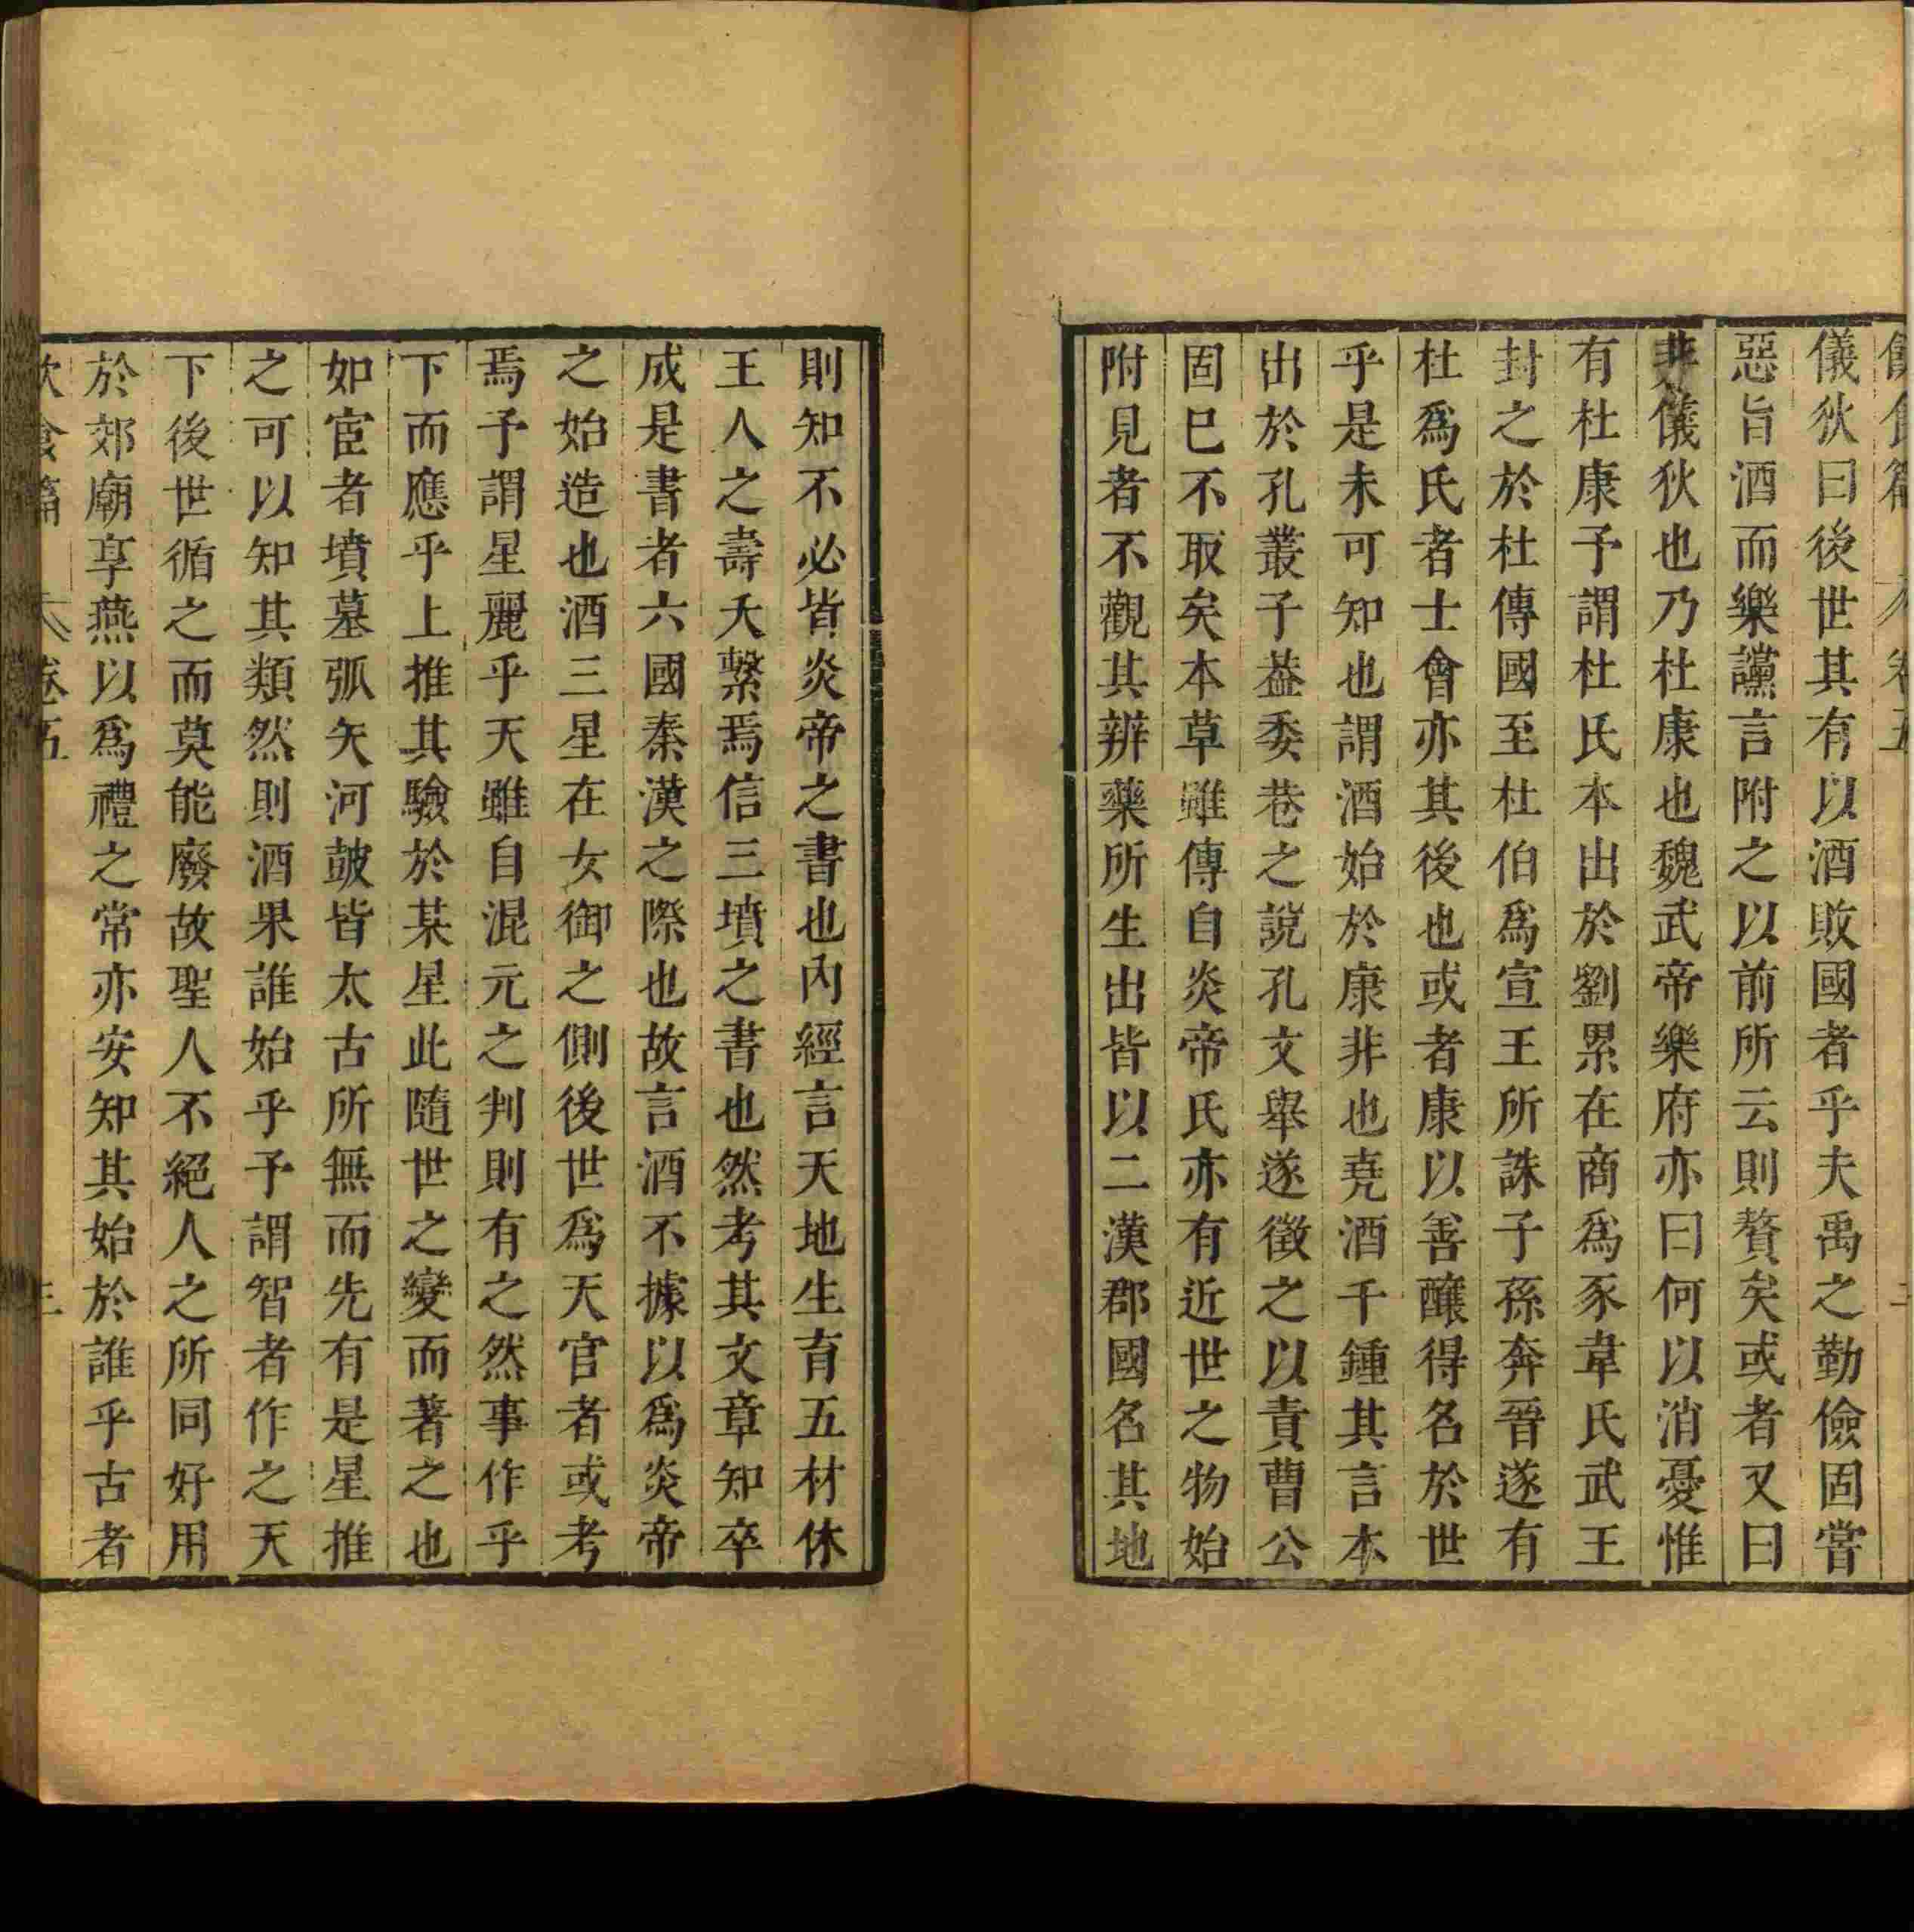 儀狄曰後世其有以酒敗國者乎夫禹之勤儉固嘗
惡旨酒而樂讜言附之以前所云則贅矣或者又曰
非儀狄也乃杜康也魏武帝樂府亦曰何以消憂惟
有杜康予謂杜氏本出於劉累在商爲豕韋氏武王
封之於杜傳國至杜伯爲宣王所誅子孫奔晉遂有
杜爲氏者士會亦其後也或者康以善釀得名於世
乎是未可知也謂酒始於康非也堯酒千鍾其言本
出於孔叢子葢委巷之說孔文舉遂徵之以責曹公
固巳不取矣本草雖傳自炎帝氏亦有近世之物始
附見者不觀其辨藥所生出皆以二漢郡國名其地
則知不必皆炎帝之書也內經言天地生育五材休
王人之壽夭繫焉信三墳之書也然考其文章知卒
成是書者六國秦漢之際也故言酒不據以爲炎帝
之始造也酒三星在女御之側後世爲天官者或考
焉予謂星麗乎天雖自混元之判則有之然事作乎
下而應乎上推其驗於某星此隨世之變而著之也
如宦者墳墓弧矢河鼓皆太古所無而先有是星推
之可以知其類然則酒果誰始乎予謂智者作之天
下後世循之而莫能廢故聖人不絕人之所同好用
於郊廟享燕以爲禮之常亦安知其始於誰乎古者